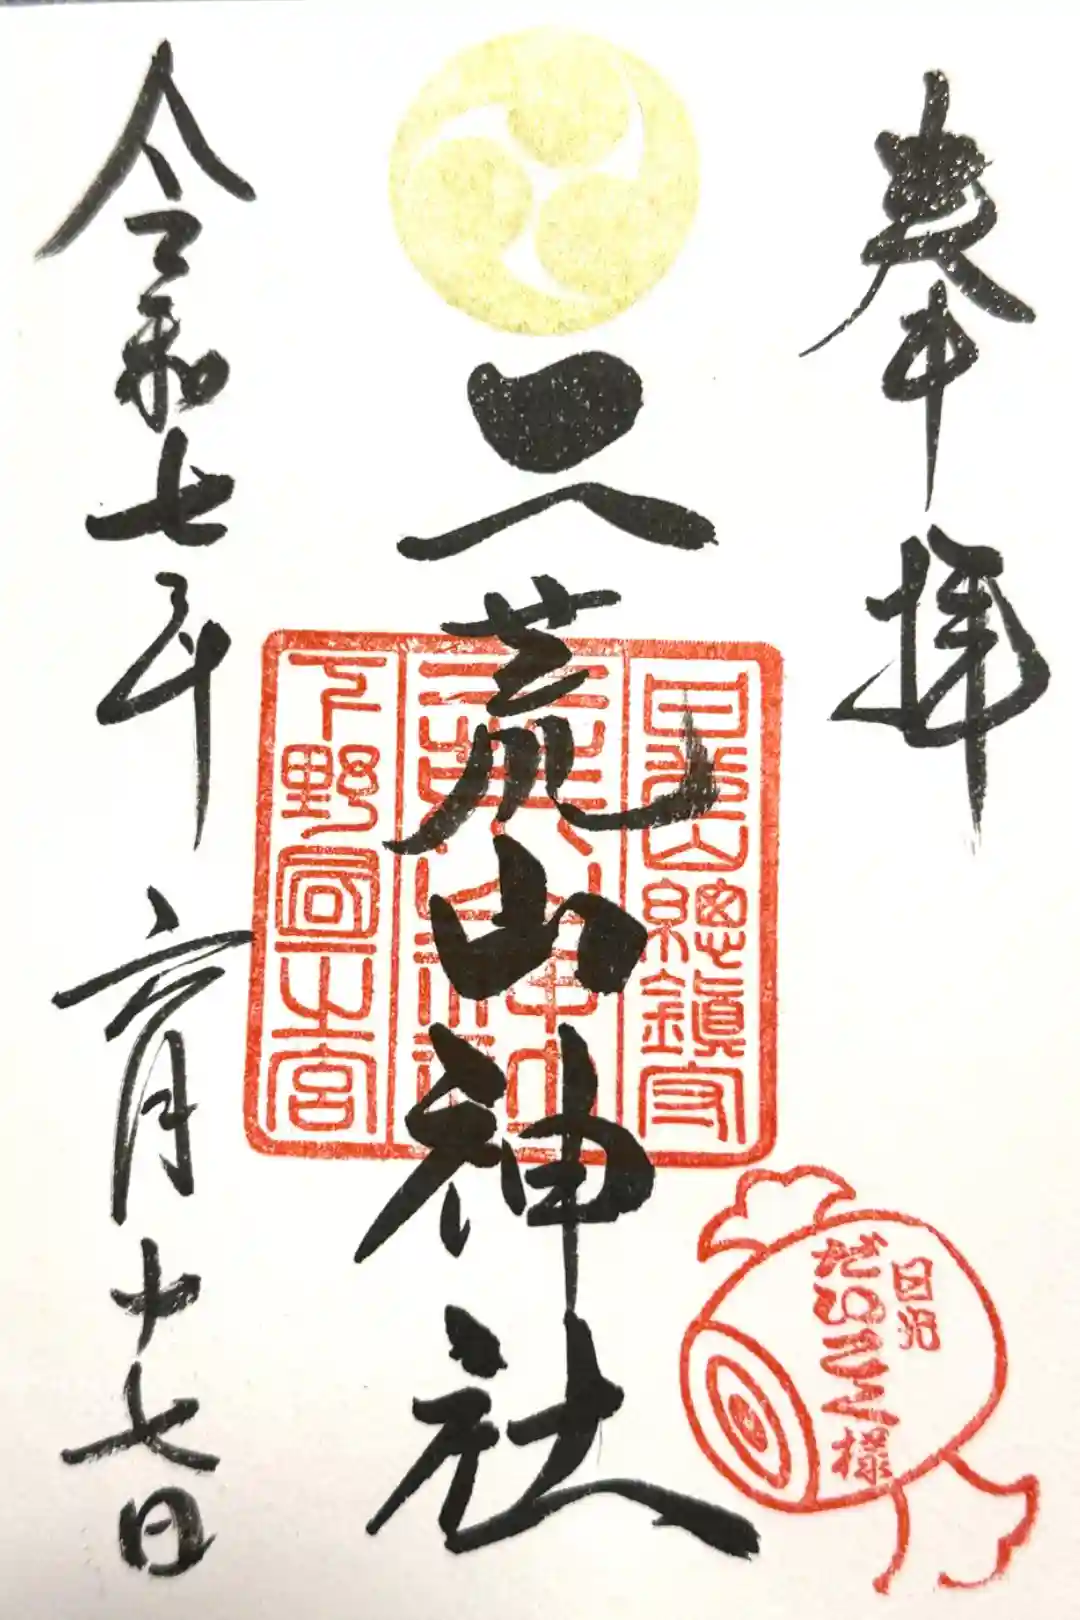 奉拝
日光山總鎮守
二荒山神社
二荒山神社
下野国一之宮
令和七年六月十七日
日光
だいこく様